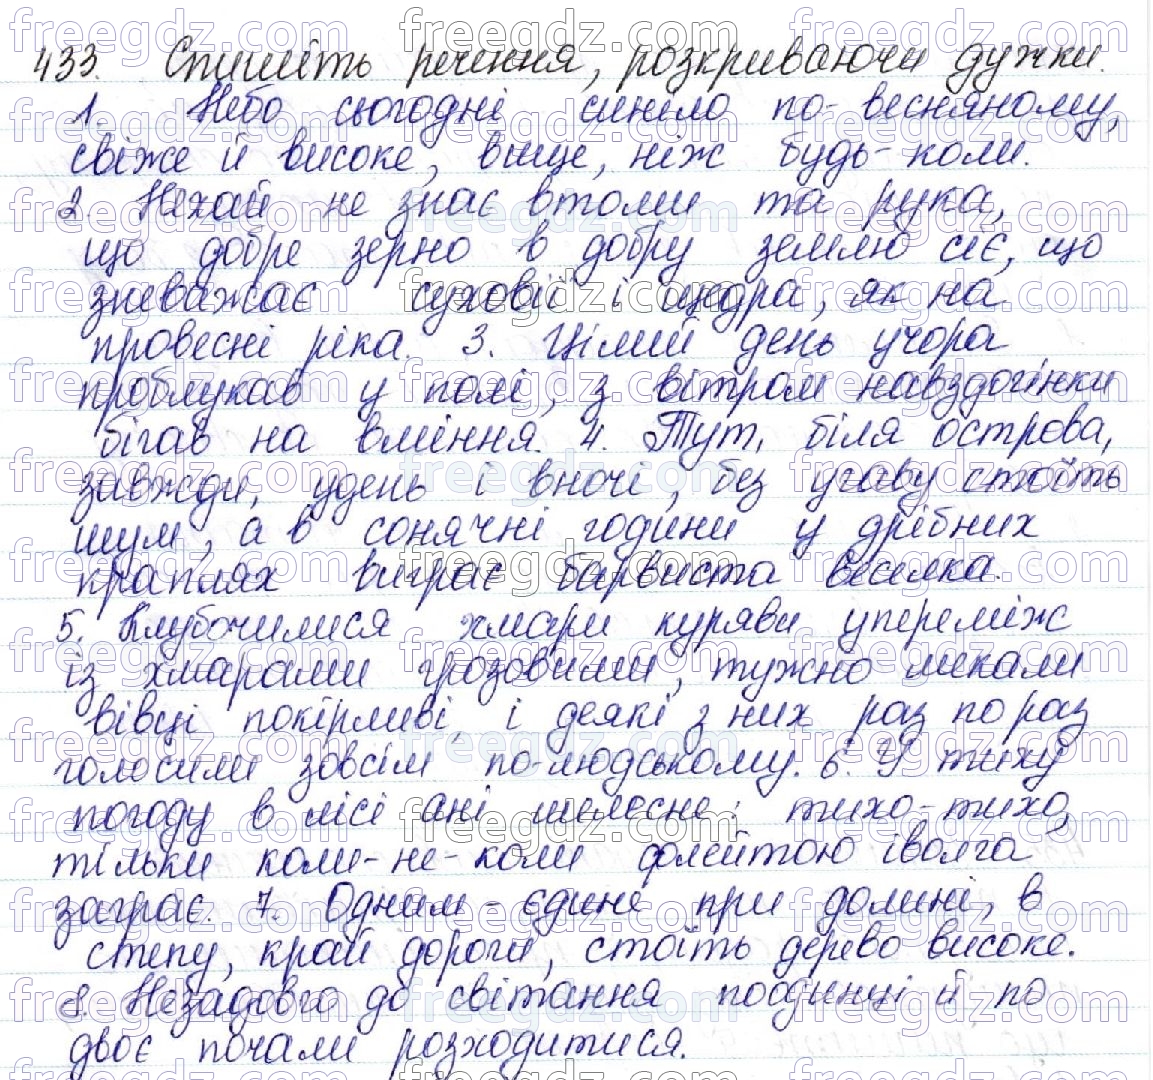 433. Спишіть речення, розкриваючи дужки.
1. Небо сьогодні синіло по-весняному,
свіже й високе, вище, ніж будь-коли.
2. Нехай не знає втоми та рука,
що добре зерно в добру землю сіє, що
зневажає суховії і щедра, як на
провесні ріка. 3. Цілий день учора
проблукав у полі, з вітром навздогінки
бігав на вміння. 4. Тут, біля острова,
завжди, удень і вночі, без угаву стоїть
шум, а в сонячні години у дрібних
краплях виграє барвиста веселка.
5. Клубочилися хмари куряви упереміж
із хмарами грозовими, тужно мекали
вівці покірливі, і деякі з них раз по раз
голосили зовсім по-людському. 6. У тиху
погоду в лісі ані шелесне: тихо-тихо,
тільки коли-не-коли флейтою іволга
заграє. 7. Одним-єдине при долині, в
степу, край дороги, стоїть дерево високе.
8. Незадовго до світання поодинці й по
двоє почали розходитися.